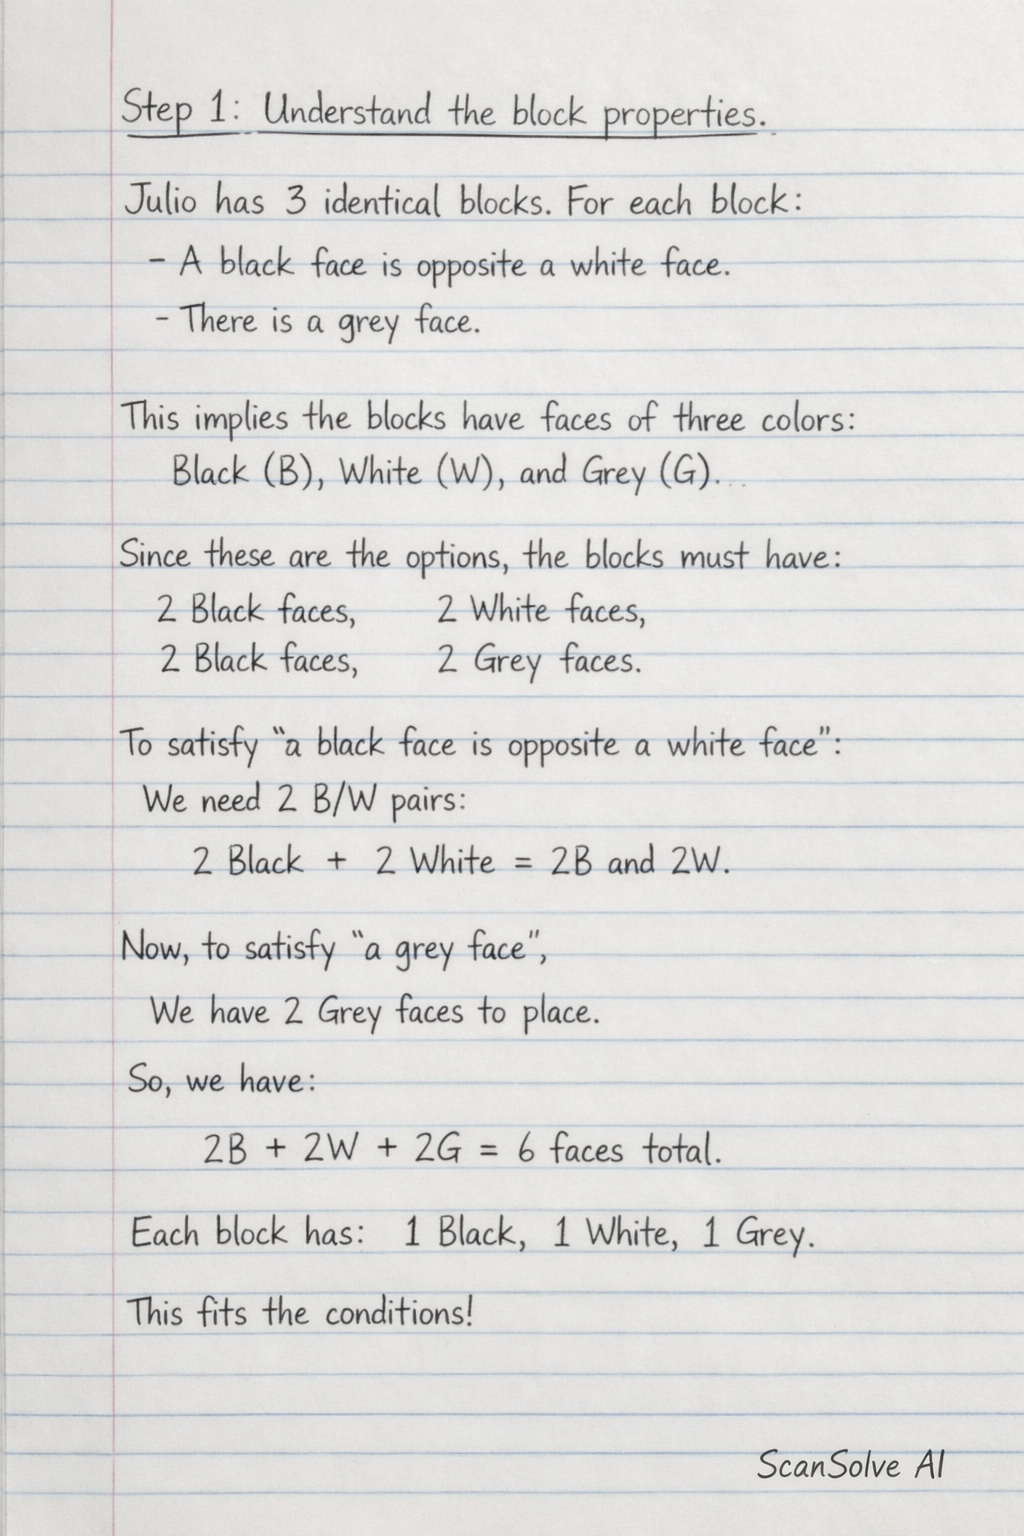 Step 1: Understand the block properties.
Julio has 3 identical blocks. For each block:
- A black face is opposite a white face.
- There is a grey face.
This implies the blocks have faces of three colors:
Black (B), White (W), and Grey (G)...
Since these are the options, the blocks must have:
2 Black faces, 2 White faces,
2 Black faces, 2 Grey faces.
To satisfy "a black face is opposite a white face":
We need 2 B/W pairs:
2 Black + 2 White = 2B and 2W.
Now, to satisfy "a grey face",
We have 2 Grey faces to place.
So, we have:
2B + 2W + 2G = 6 faces total.
Each block has: 1 Black, 1 White, 1 Grey.
This fits the conditions!
ScanSolve AI